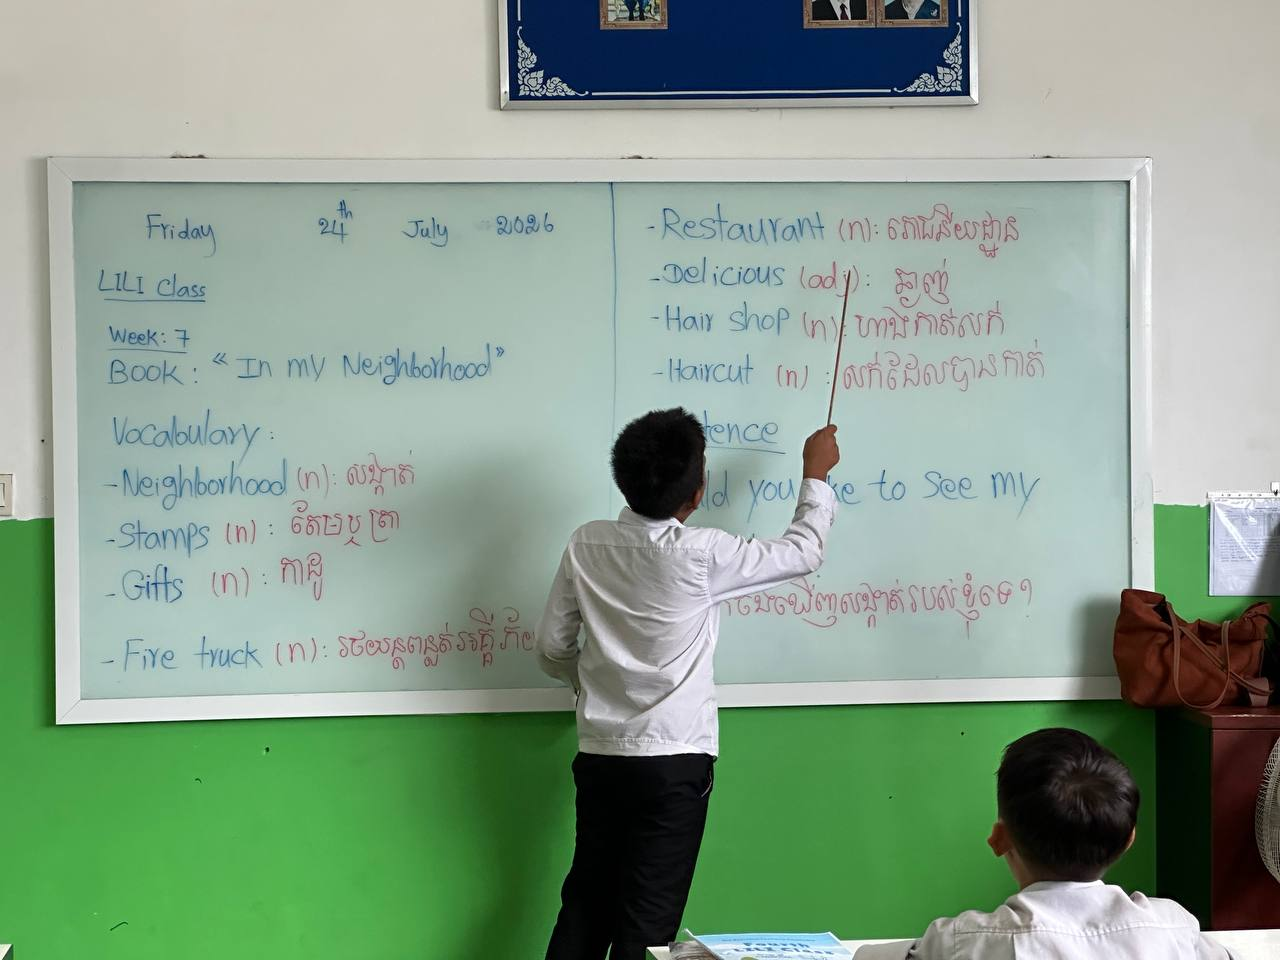 Friday 24th July 2026
LILI Class
Week: 7
Book: "In my Neighborhood"
Vocabulary:
- Neighborhood (n): សង្កាត់
- Stamps (n): តែមឬត្រា
- Gifts (n): កាដូ
- Fire truck (n): រថយន្តពន្លត់អគ្គីភ័យ
- Restaurant (n): ភោជនីយដ្ឋាន
- Delicious (adj): ឆ្ងាញ់
- Hair shop (n): ហាងកាត់សក់
- Haircut (n): សក់ដែលបានកាត់
you to see my
ឃើញសង្កាត់របស់ខ្ញុំទេ?
Fourth
LILI Class